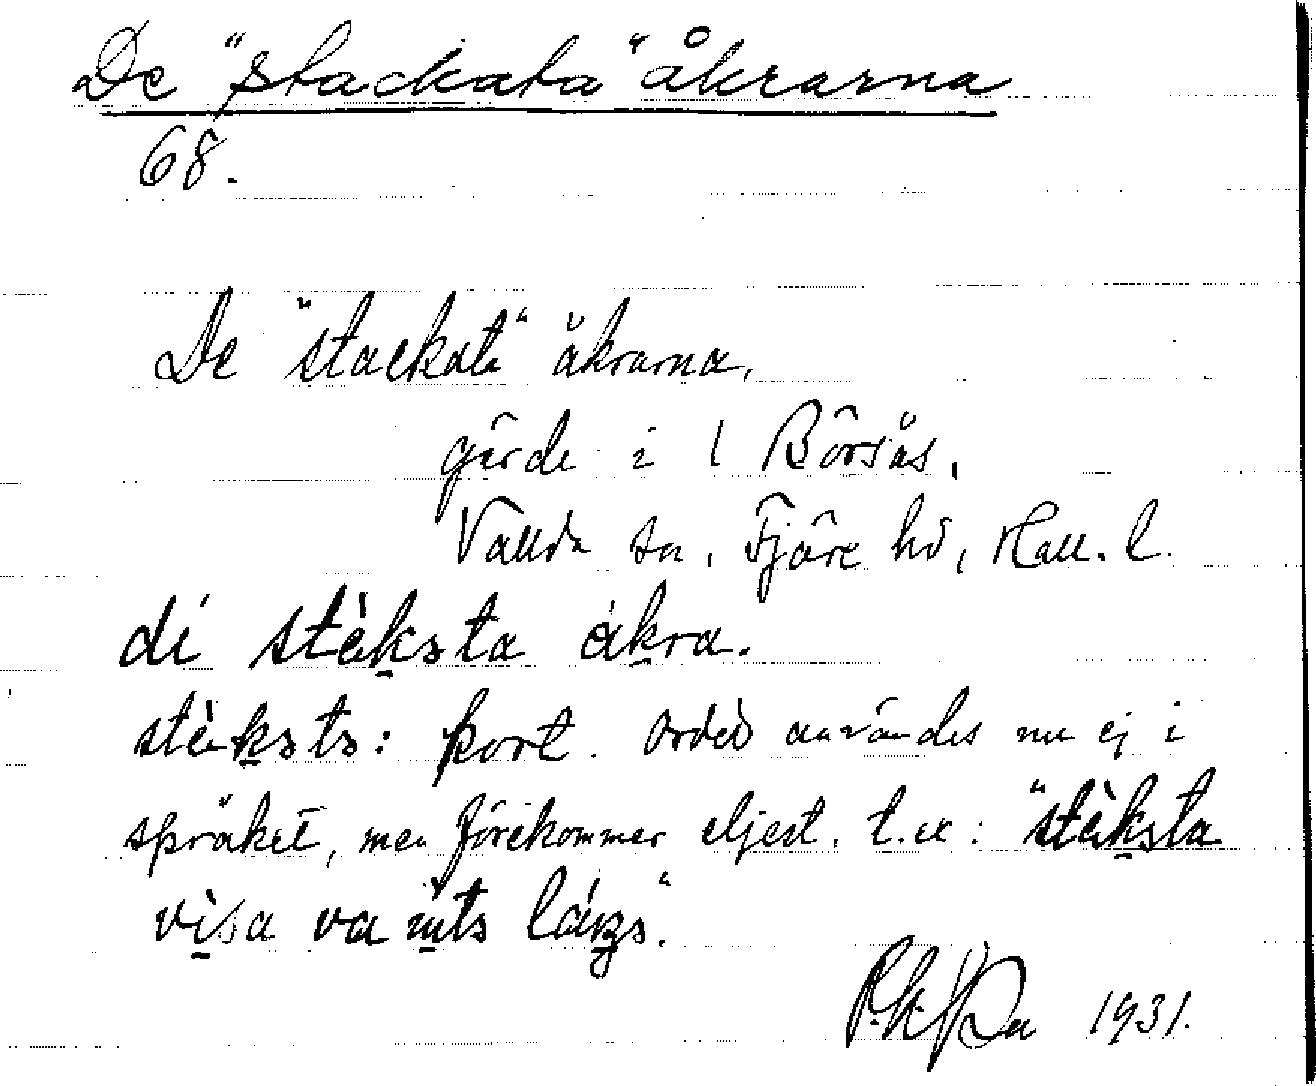 De "stackata" åkrarna
68.
De "stackata" åkrarna,
gärde i 1 Börsås,
Vallda sn, Fjäre hd, Hall. l.
di stèksta åkra.
stèksts: kort. Ordet användes nu ej i
språket, men förekommer eljest. t.ex: "stèksta
visa va
1931.